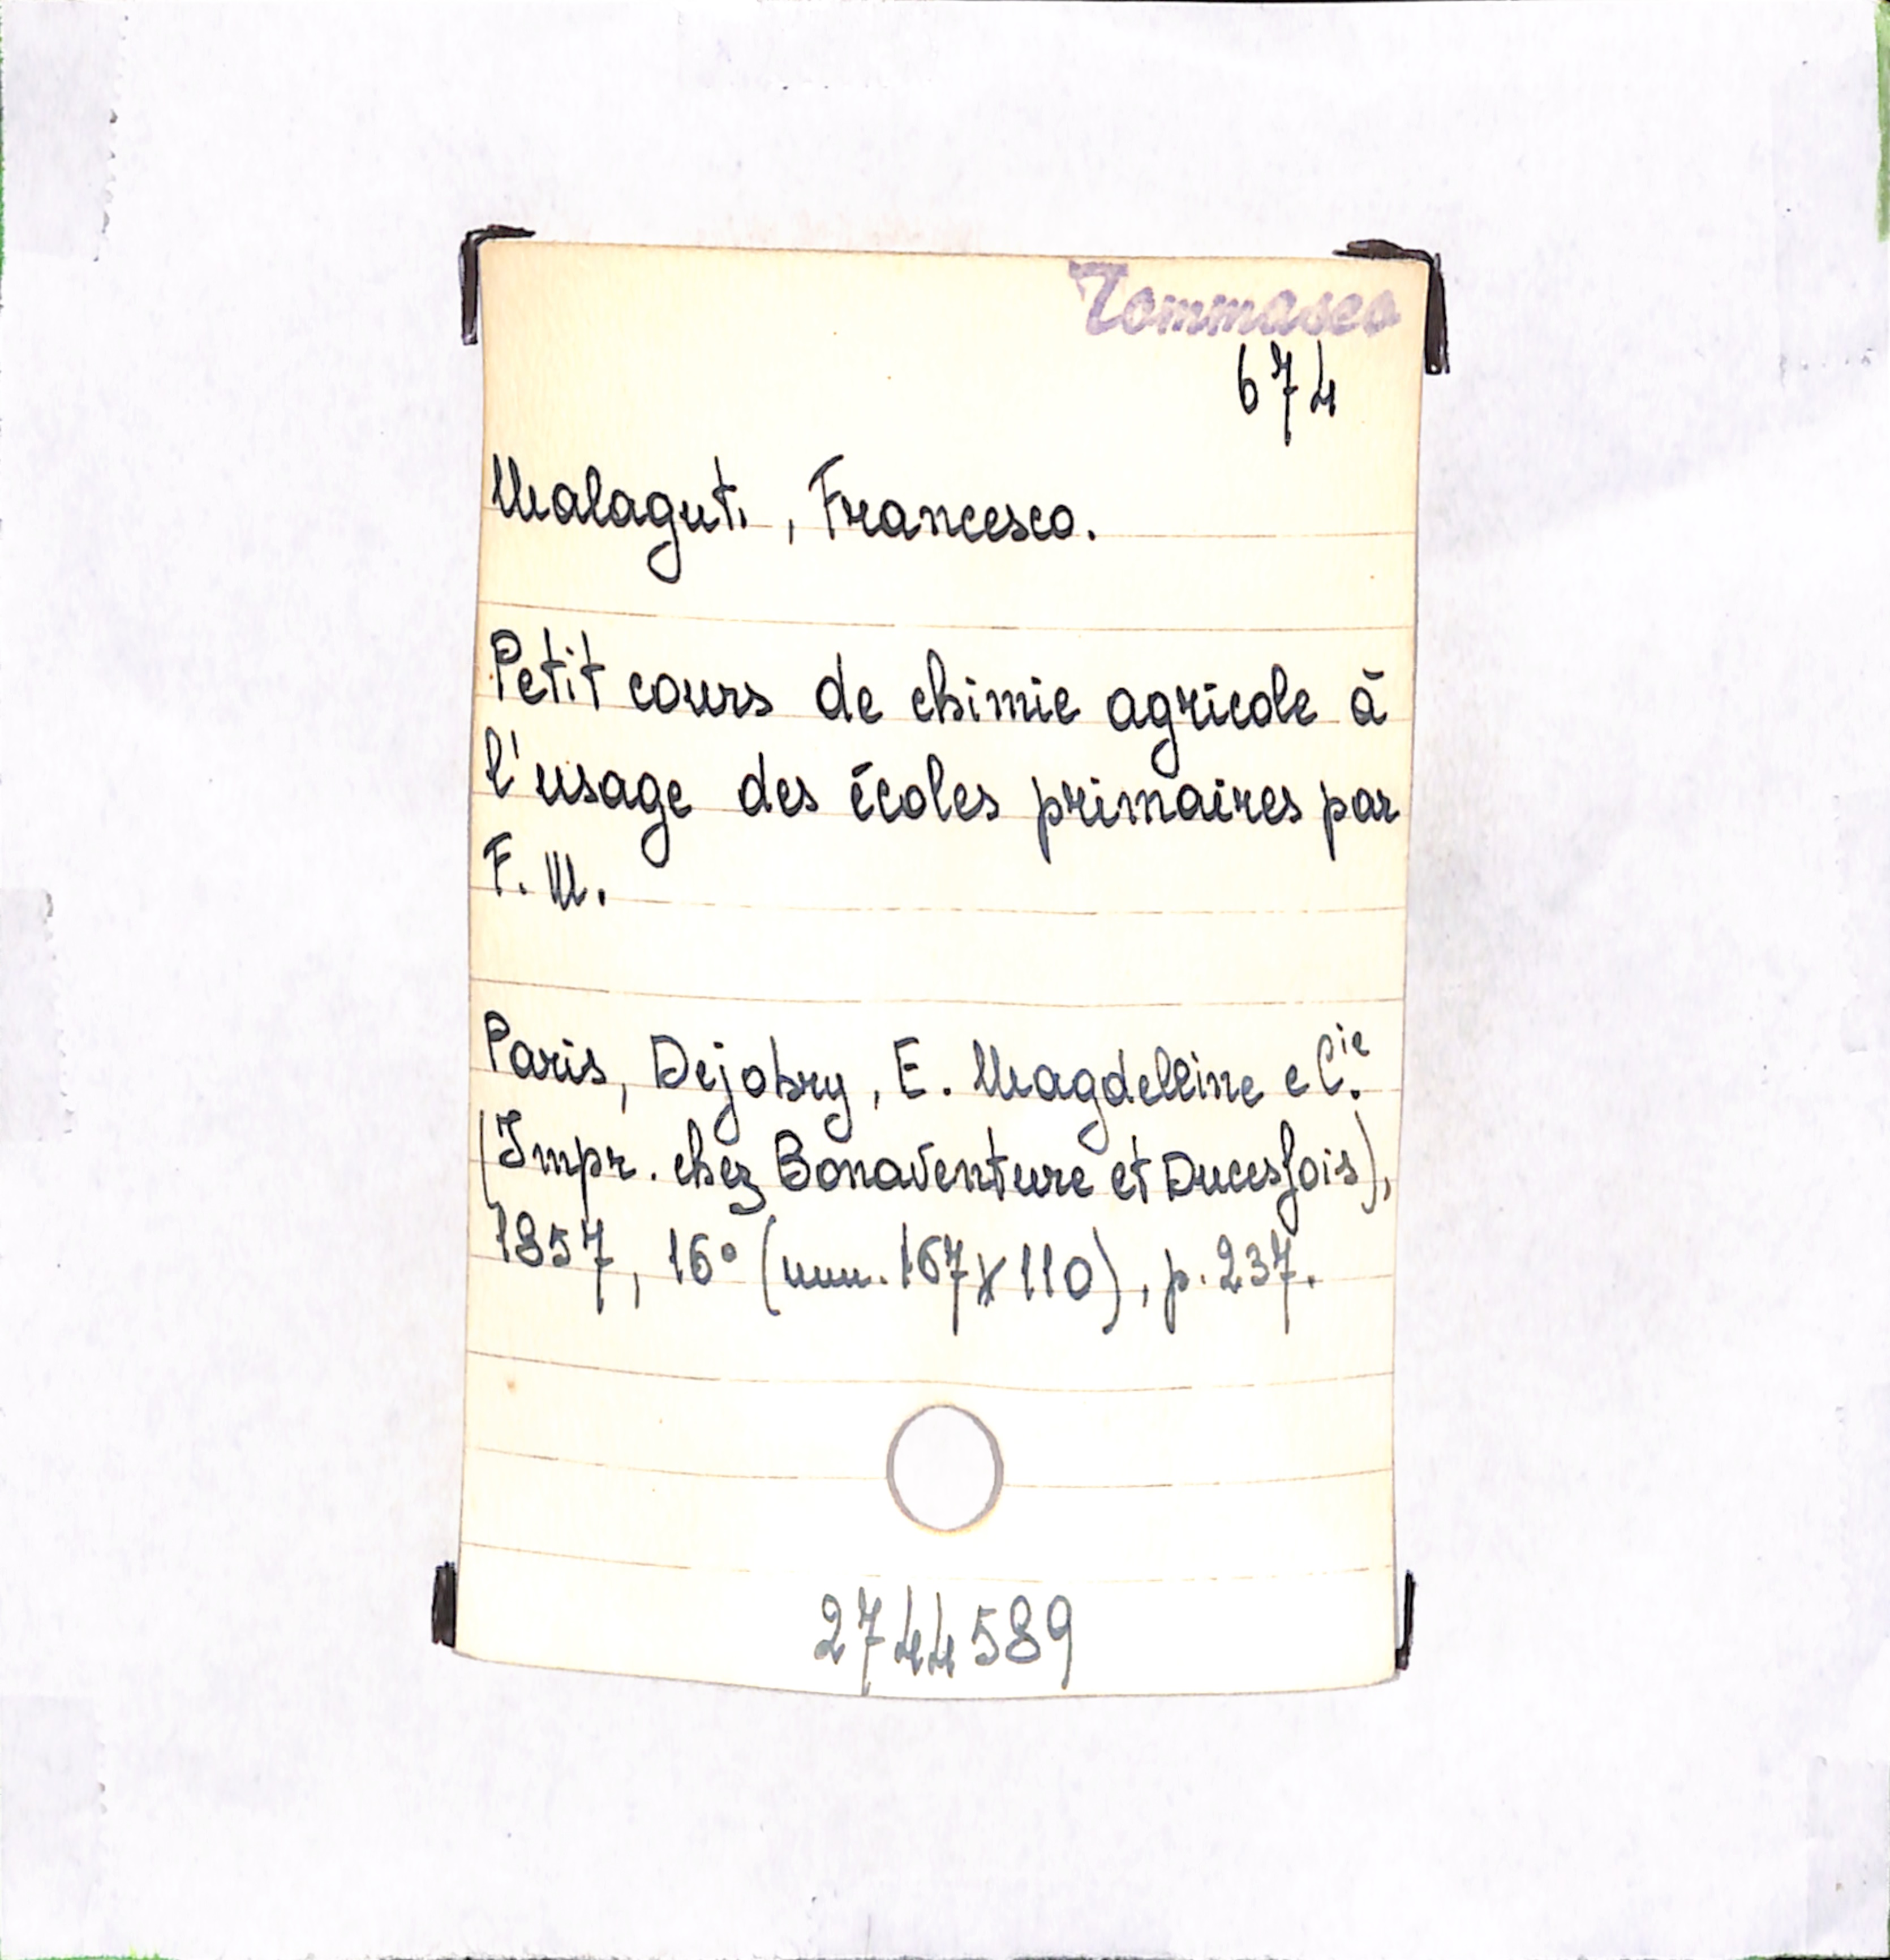 Tommaseo
674
Malaguti, Francesco.
Petit cours de chimie agricole à
l'usage des écoles primaires par
F. M.
Paris, Dejobry, E. Magdeleine e C.ie
(Impr. chez Bonaventure et Ducesfois),
1857, 16° (mm. 167x110), p. 237.
2744589